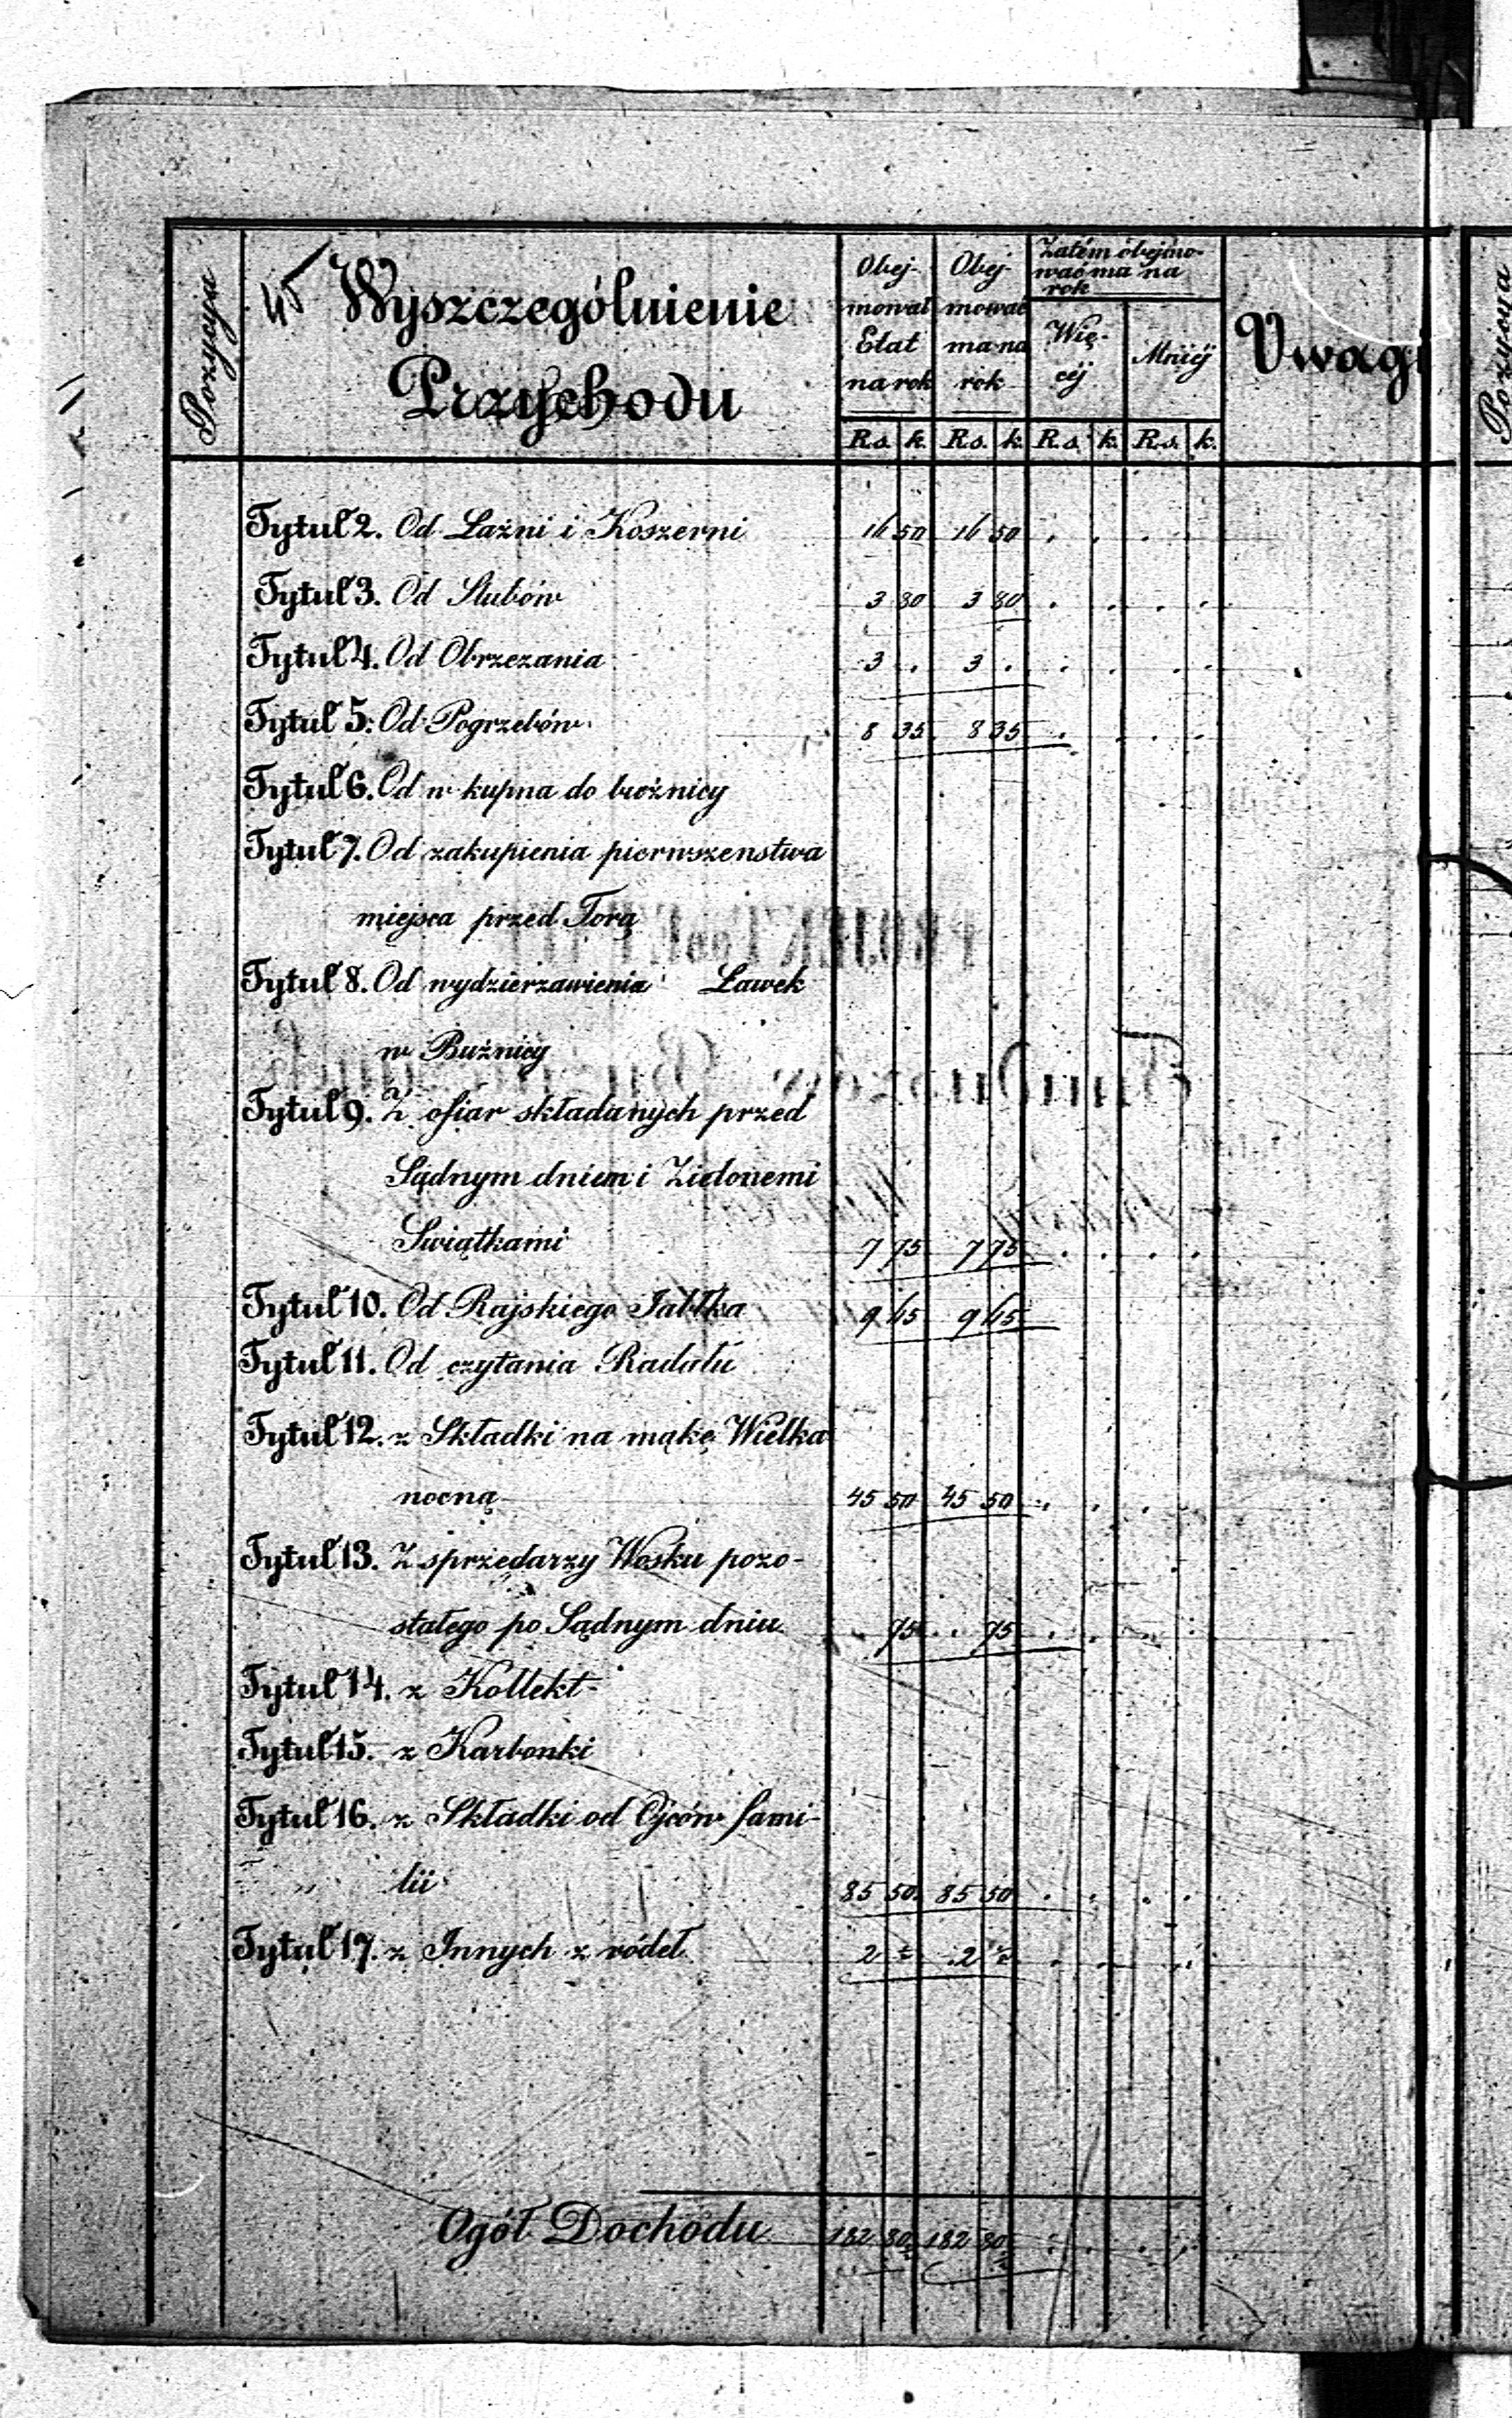 45
Pozycya
Wyszczególnienie
Przychodu
Obej-
mował
Etat
na rok
Obej-
mować
ma na
rok
Zatém obejmo-
wać ma na
rok
Wię-
céj
Mniéj
Uwagi
R.s. k. R.s. k. R.s. k. R.s. k.
Tytuł 2. Od Łaźni i Koszerni 16 50 16 50 . . . .
Tytuł 3. Od Slubów 3 80 3 80 . . . .
Tytuł 4. Od Obrzezania 3 . 3 . . . . .
Tytuł 5. Od Pogrzebów 8 35 8 35 . . . .
Tytuł 6. Od w kupna do bóżnicy
Tytuł 7. Od zakupienia pierwszenstwa
miejsca przed Torą
Tytuł 8. Od wydzierzawienia Ławek
w Bużnicy
Tytuł 9. Z ofiar składanych przed
Sądnym dniem i Zielonemi
Swiątkami 7 75 7 75 . . . .
Tytuł 10. Od Rajskiego Jabłka 9 45 9 45
Tytuł 11. Od czytania
Tytuł 12. z Składki na mąkę Wielka
nocną 45 50 45 50 . . . .
Tytuł 13. Z sprzedarzy Wosku pozo-
stałego po Sądnym dniu . 75 . 75 . . . .
Tytuł 14. z Kollekt
Tytuł 15. z Karbonki
Tytuł 16. z Składki od Ojców fami-
" lii 85 50 85 50 . . . .
Tytuł 17. z Innych z ródeł 2 2 . . . .
Ogół Dochodu 182 80 182 80 . . . .